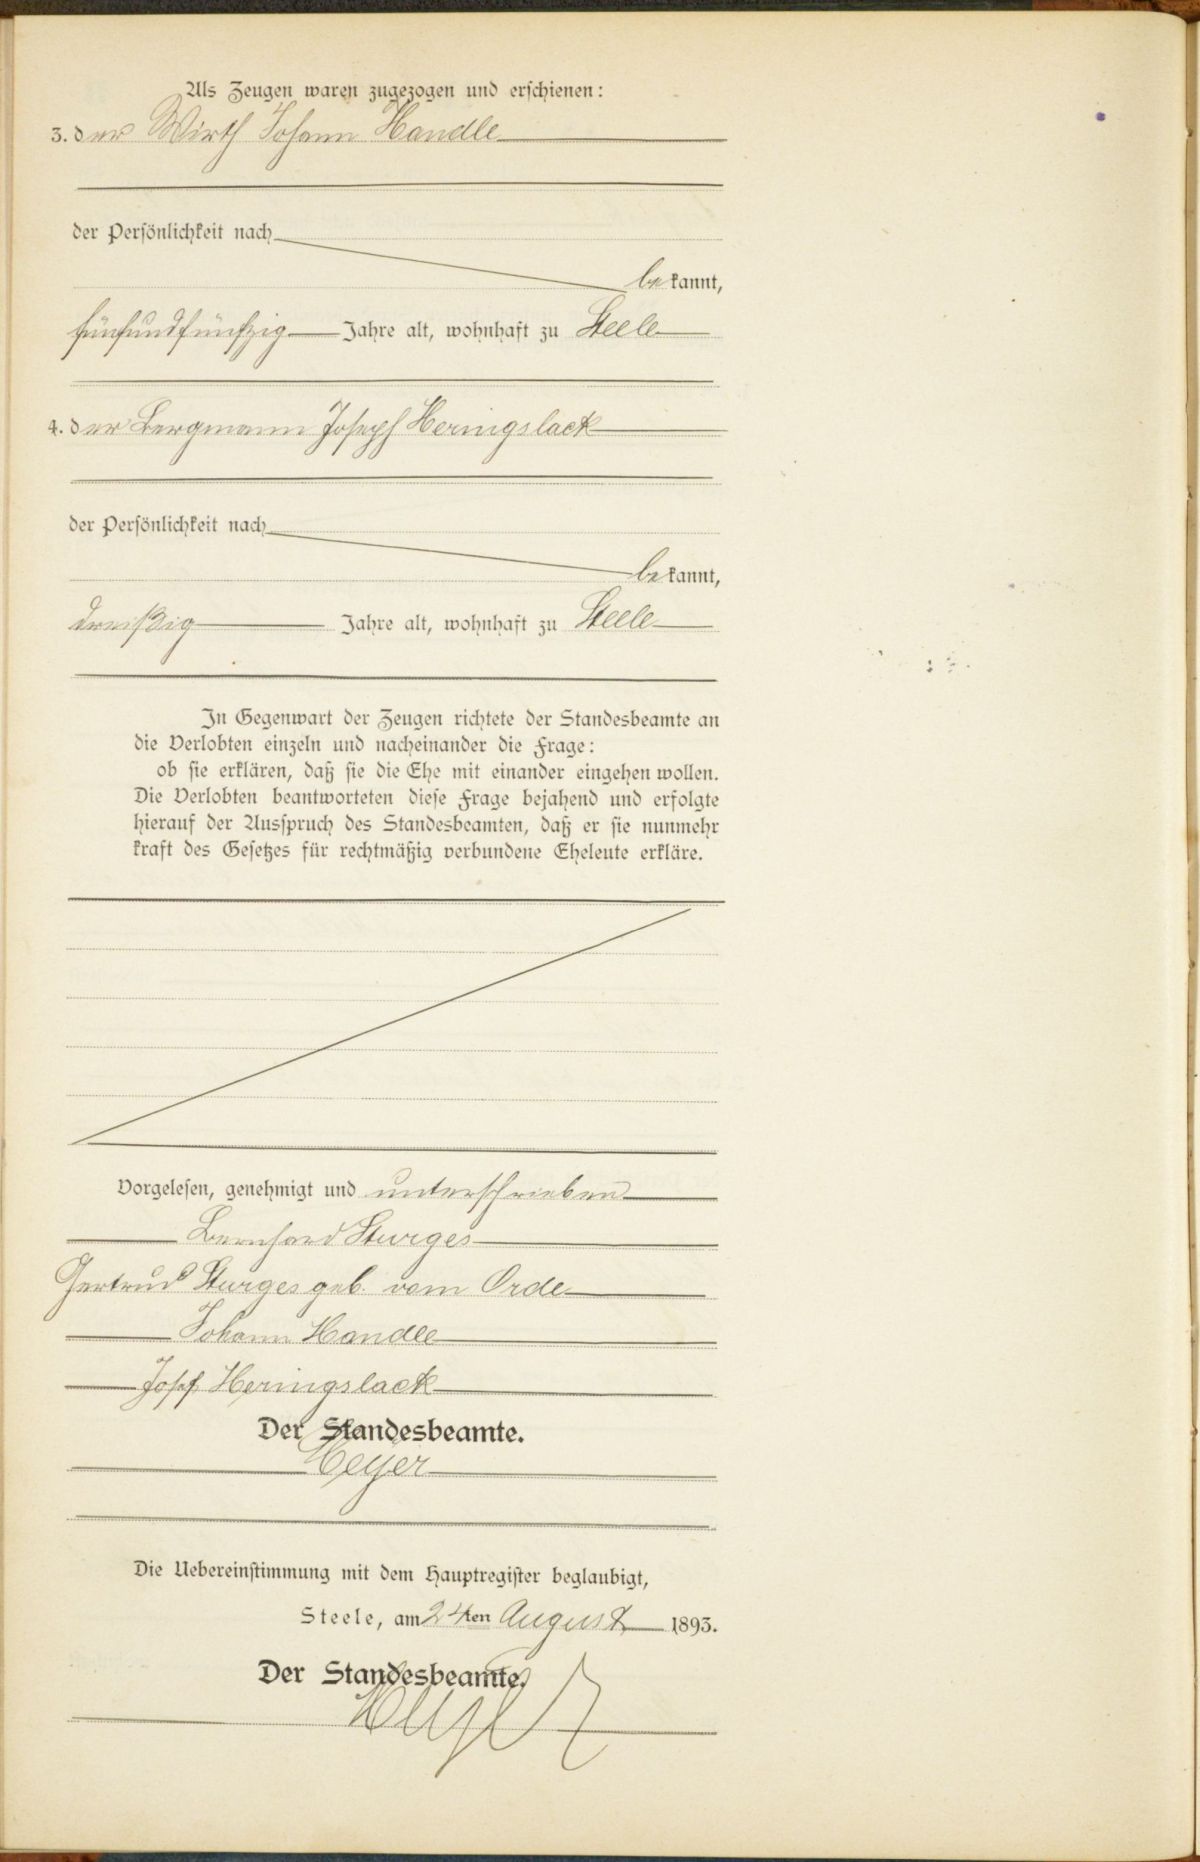 Als Zeugen waren zugezogen und erschienen:
3. der Wirth Johann Handle
der Persönlichkeit nach
bekannt,
fünfundfünfzig Jahre alt, wohnhaft zu Steele
4. der Bergmann Joseph Heringslack
der Persönlichkeit nach
bekannt,
dreißig Jahre alt, wohnhaft zu Steele
In Gegenwart der Zeugen richtete der Standesbeamte an
die Verlobten einzeln und nacheinander die Frage:
ob sie erklären, daß sie die Ehe mit einander eingehen wollen.
Die Verlobten beantworteten diese Frage bejahend und erfolgte
hierauf der Ausspruch des Standesbeamten, daß er sie nunmehr
kraft des Gesetzes für rechtmäßig verbundene Eheleute erkläre.
Vorgelesen, genehmigt und unterschrieben
Bernhard Sturges
Gertrud Sturges geb. vom Orde
Johann Handle
Josef Heringslack
Der Standesbeamte.
Heyer
Die Uebereinstimmung mit dem Hauptregister beglaubigt,
Steele, am 24ten August 1893.
Der Standesbeamte.
Heyer